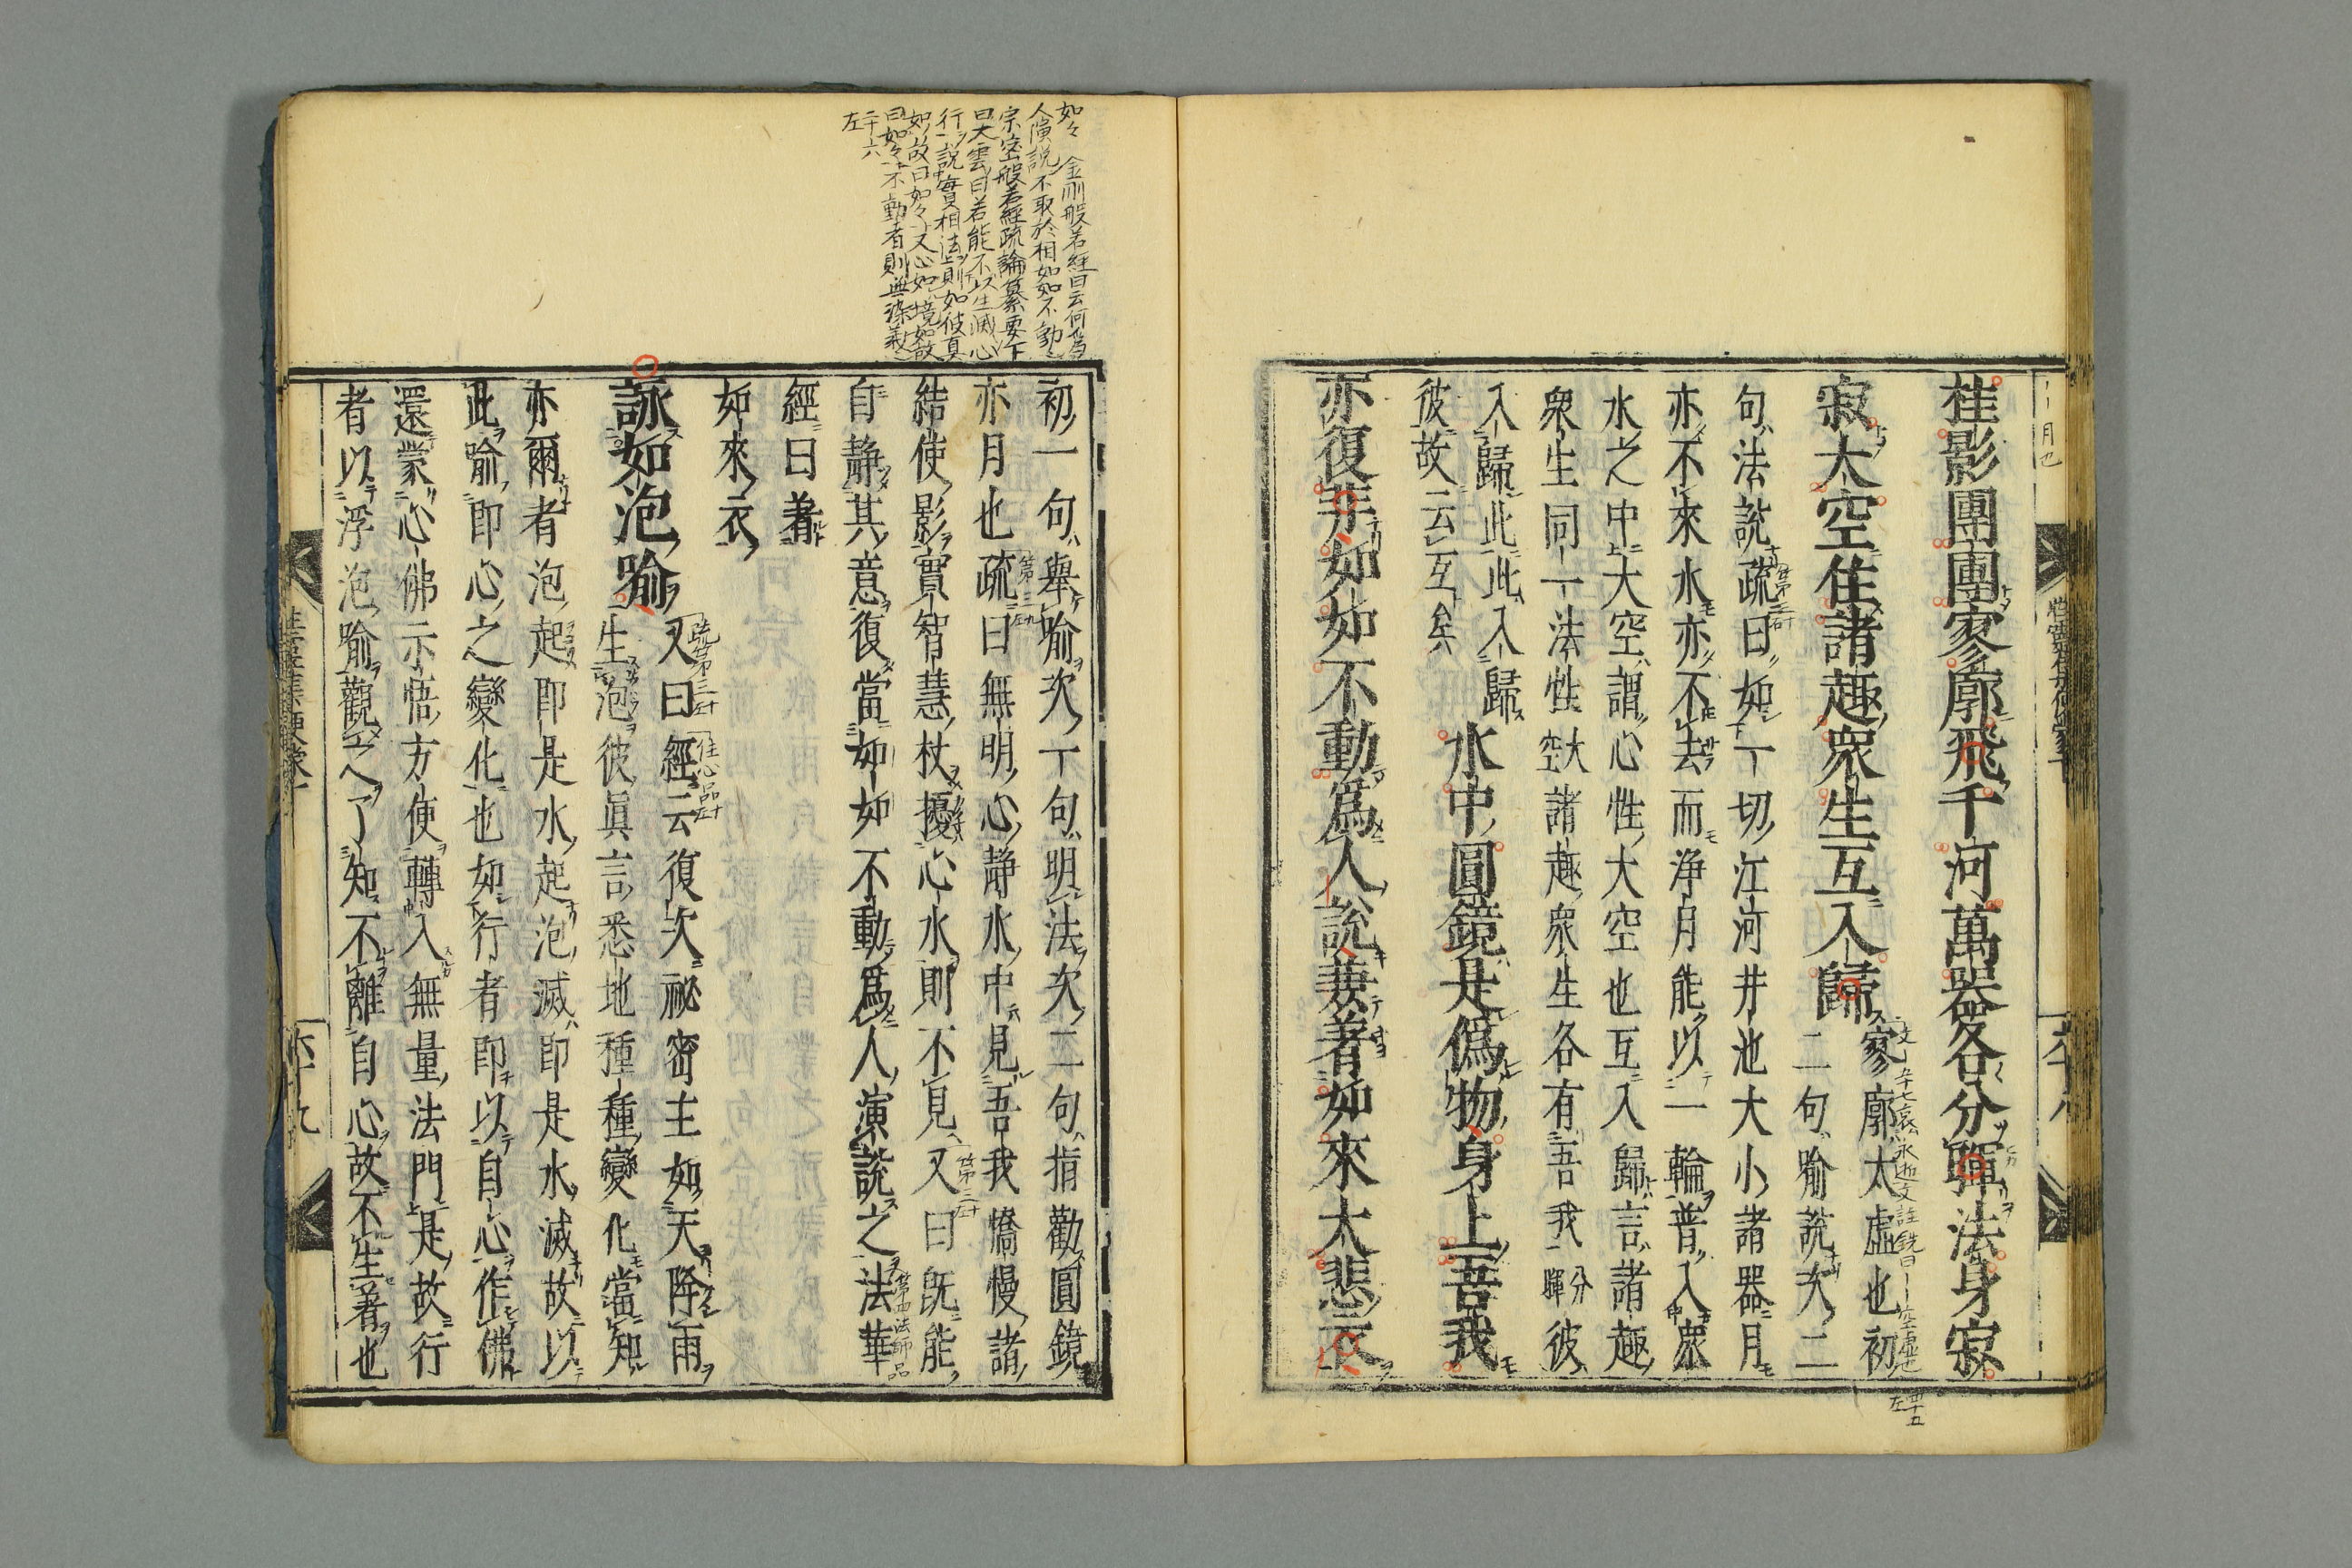 桂影團團寥廓飛千河萬器各分暉法身寂
寂大空住諸趣衆生互入歸
寥廓太虛也初
二句喻說次二
句法說疏曰如一切江河井池大小諸器月
亦不來水亦不去而淨月能以一輪普入衆
水之中大空謂心性大空也互入歸言諸趣
衆生同一法性大空諸趣衆生各有吾我分暉彼
入歸此此入歸
彼故云互矣
水中圓鏡是僞物身上吾我
亦復非如如不動爲人說妻著如來大悲衣
初一句舉喻次一句明法次二句指勸圓鏡
亦月也疏曰無明心静水中見吾我憍慢諸
結使影實智慧杖擾心水則不見又曰旣能
自静其意復當如如不動爲人演說之法華
經曰著
如來衣
詠如泡喻
又曰經云復次祕密主如天降雨
生泡彼眞言悉地種種變化當知
亦爾者泡起即是水起泡滅即是水滅故以
此喻即心之變化也如行者即以自心作佛
還蒙心佛示悟方便轉入無量法門是故行
者以浮泡喻觀之了知不離自心故不生著也
如々 金剛般若經曰云何爲
人演説不取於相如如不動
宗密般若經疏論纂要下
曰大雲曰若能不以生滅心
行説實相法則如彼真
如故曰如々又心如境如故
曰如々不動者則無染義
二十六
左